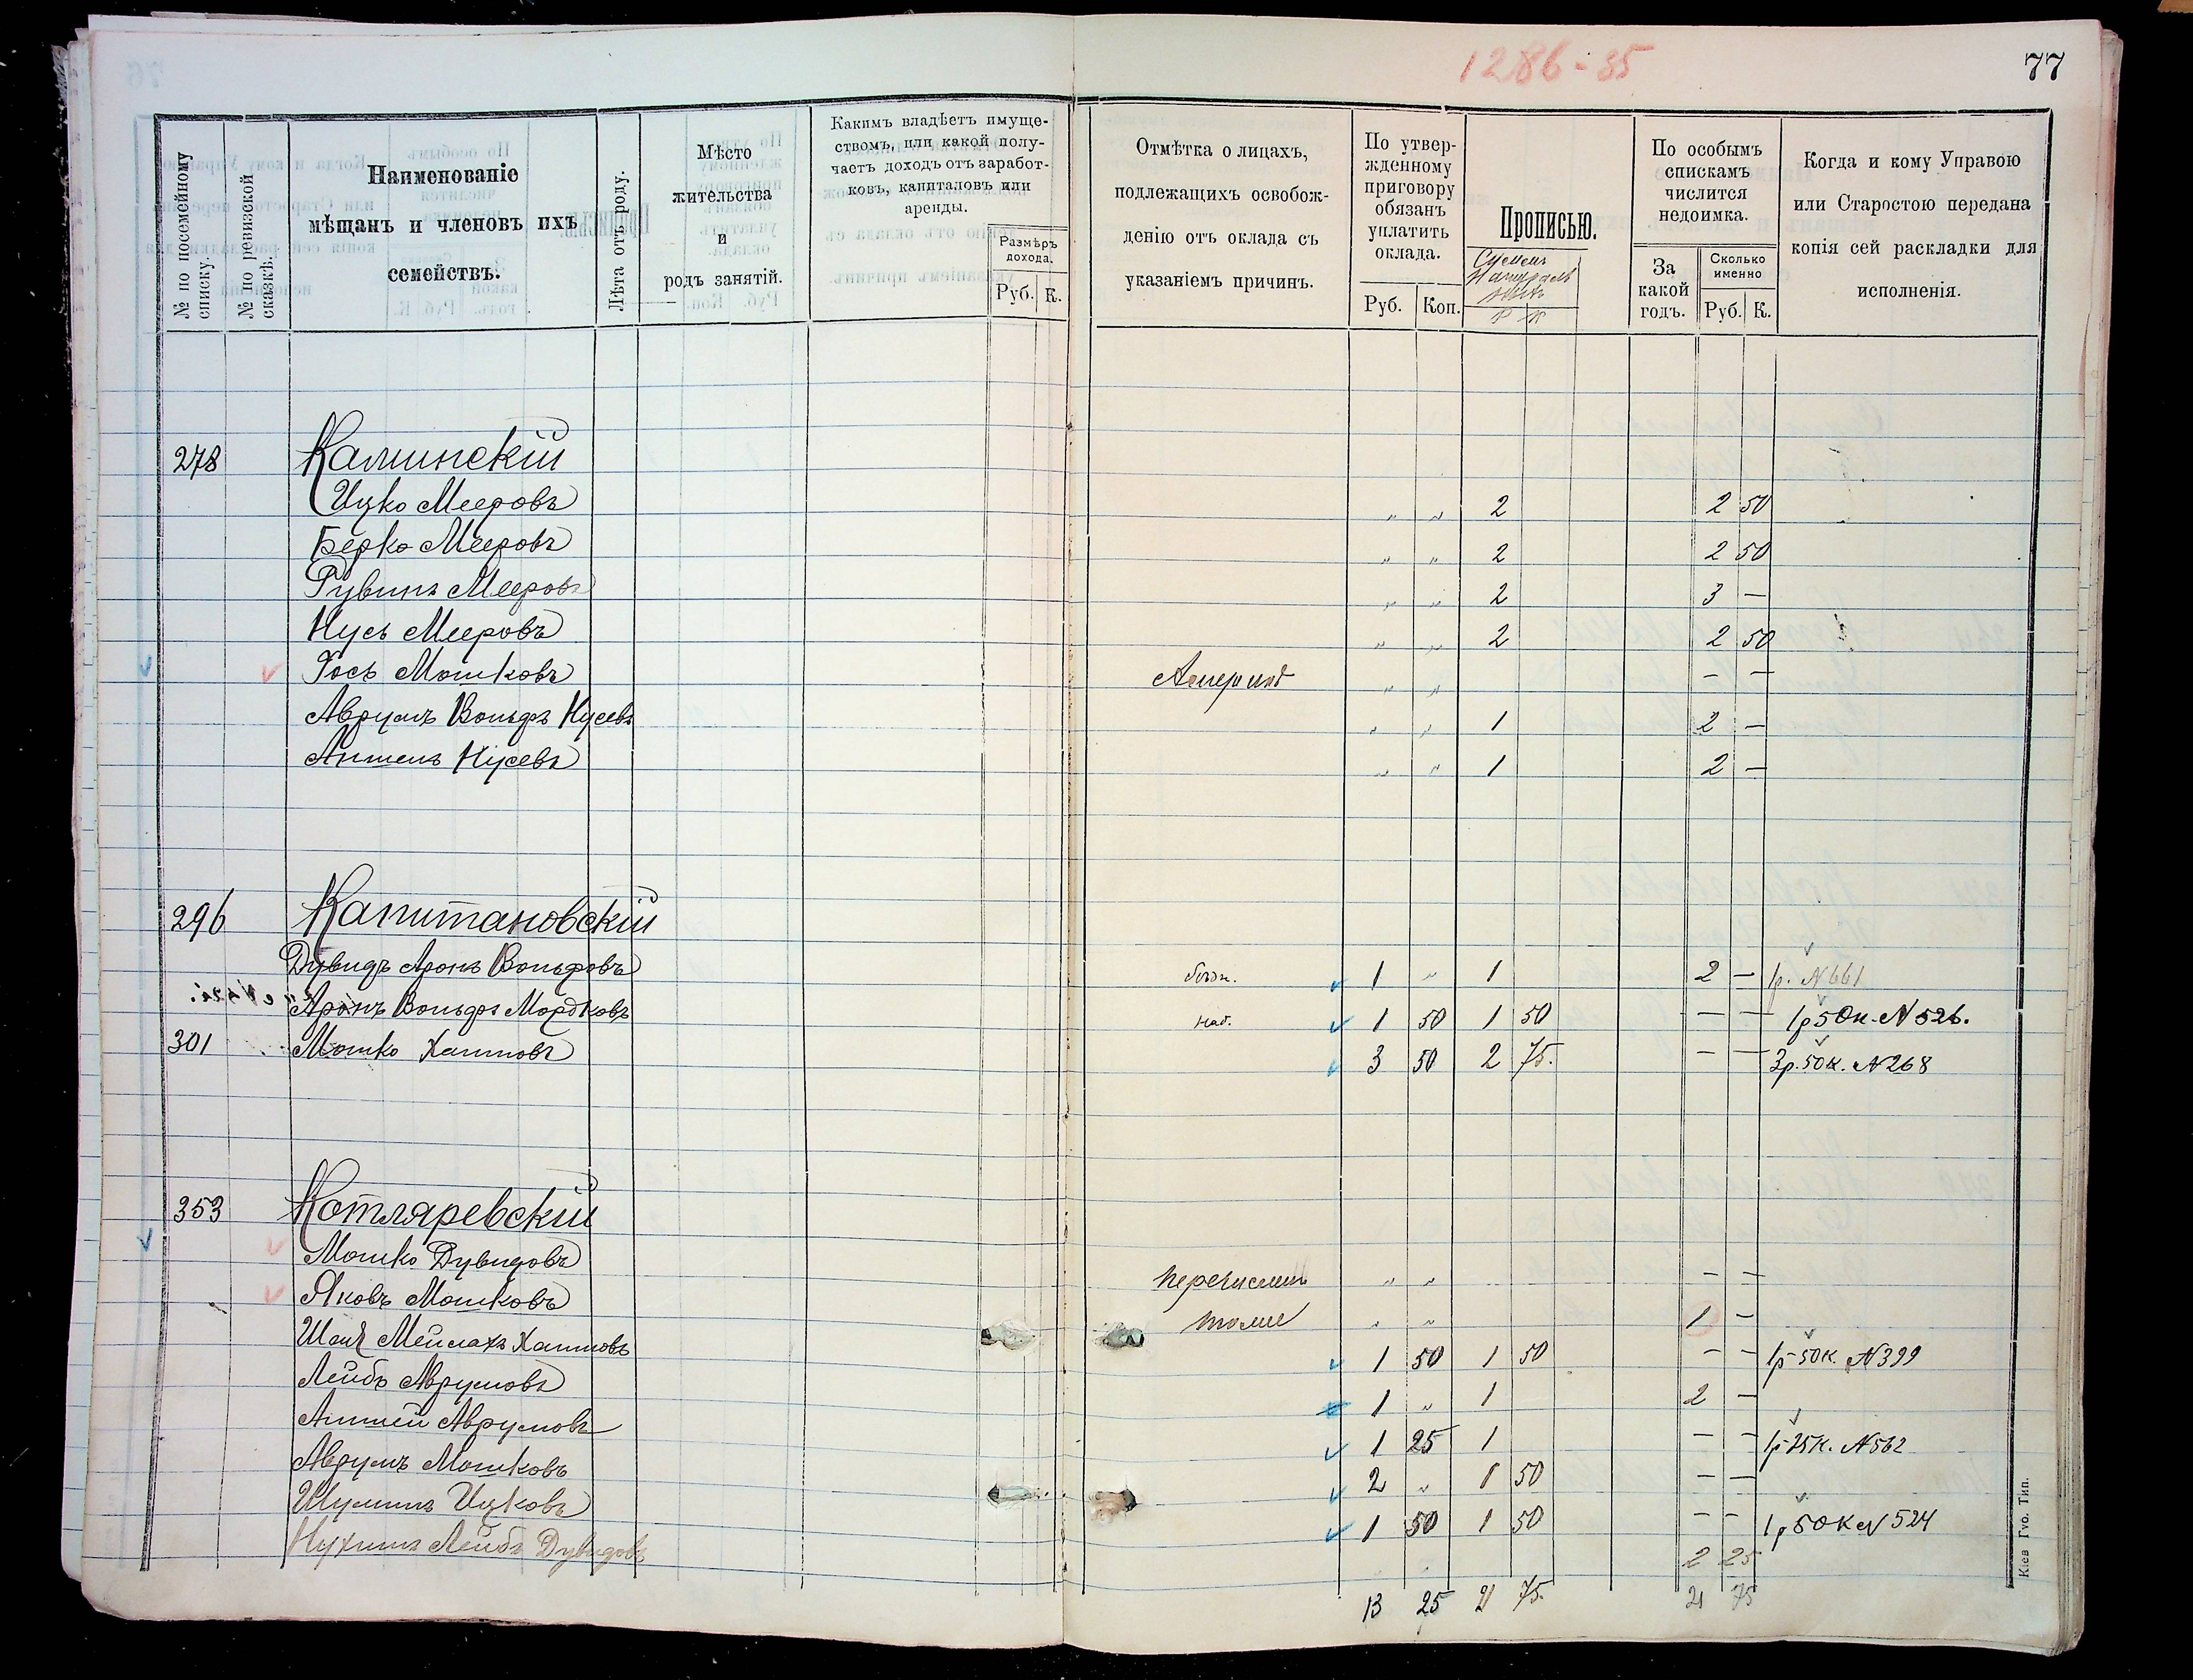 1286-35
77
№ по посемейному списку.
№ по ревизской сказкѣ.
Наименованіе
мѣщанъ и членовъ ихъ
семействъ.
Лѣта отъ роду.
Мѣсто
жительства
и
родъ занятій.
Какимъ владѣетъ имуще-
ствомъ, или какой полу-
чаетъ доходъ отъ заработ-
ковъ, капиталовъ или
аренды.
Размѣръ
дохода.
Руб. К.
Отмѣтка о лицахъ,
подлежащихъ освобож-
денію отъ оклада съ
указаніемъ причинъ.
По утвер-
жденному
приговору
обязанъ
уплатить
оклада.
Руб. Коп.
Прописью.
Р К
По особымъ
спискамъ
числится
недоимка.
За
какой
годъ.
Сколько
именно
Руб. К.
Когда и кому Управою
или Старостою передана
копія сей раскладки для
исполненія.
278 Каминскій
Ицко Мееровъ „ „ 2 2 50
Берко Мееровъ „ „ 2 2 50
Рувинъ Мееровъ „ „ 2 3 —
Нусь Мееровъ „ „ 2 2 50
Іось Мошковъ „ „ — —
Аврумъ Вольфъ Нусевъ „ „ 1 2 —
Аншель Нусевъ „ „ 1 2 —
296 Капитановскій
Дувидъ Аронъ Вольфовъ 1 „ 1 2 — 1р. N 661
Аронъ Вольфъ Мордковъ 1 50 1 50 — — 1р 50к. N 526.
301 Мошко Хаимовъ 3 50 2 75. — — 3р. 50к. N 268
353 Котляревскій
Мошко Дувидовъ перечислен „ „ — —
Яковъ Мошковъ тоже „ „ 1 —
Шая Мейлахъ Хаимовъ 1 50 1 50 — — 1р 50к. N 399
Лейбъ Аврумовъ 1 „ 1 2 —
Аншей Аврумовъ 1 25 1 — — 1р 25к. N 562
Аврумъ Мошковъ 2 „ 1 50 — —
Шулимъ Ицковъ 1 50 1 50 — — 1р 50к N 524
Нухимъ Лейбъ Дувидовъ 2 25
13 25 21 75. 21 75
Кіев Гуо. Тип.